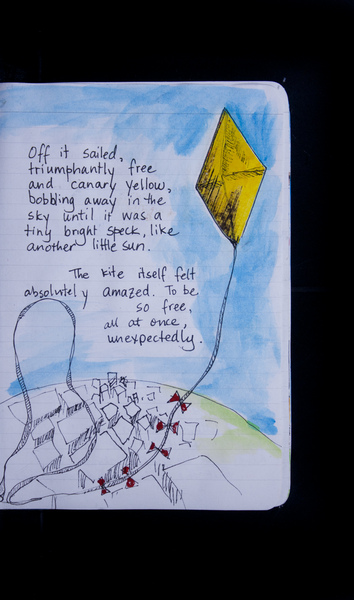 Off it sailed,
triumphantly free
and canary yellow,
bobbling away in the
sky until it was a
tiny bright speck, like
another little sun.
The kite itself felt
absolutely amazed. To be
so free,
all at once,
unexpectedly.